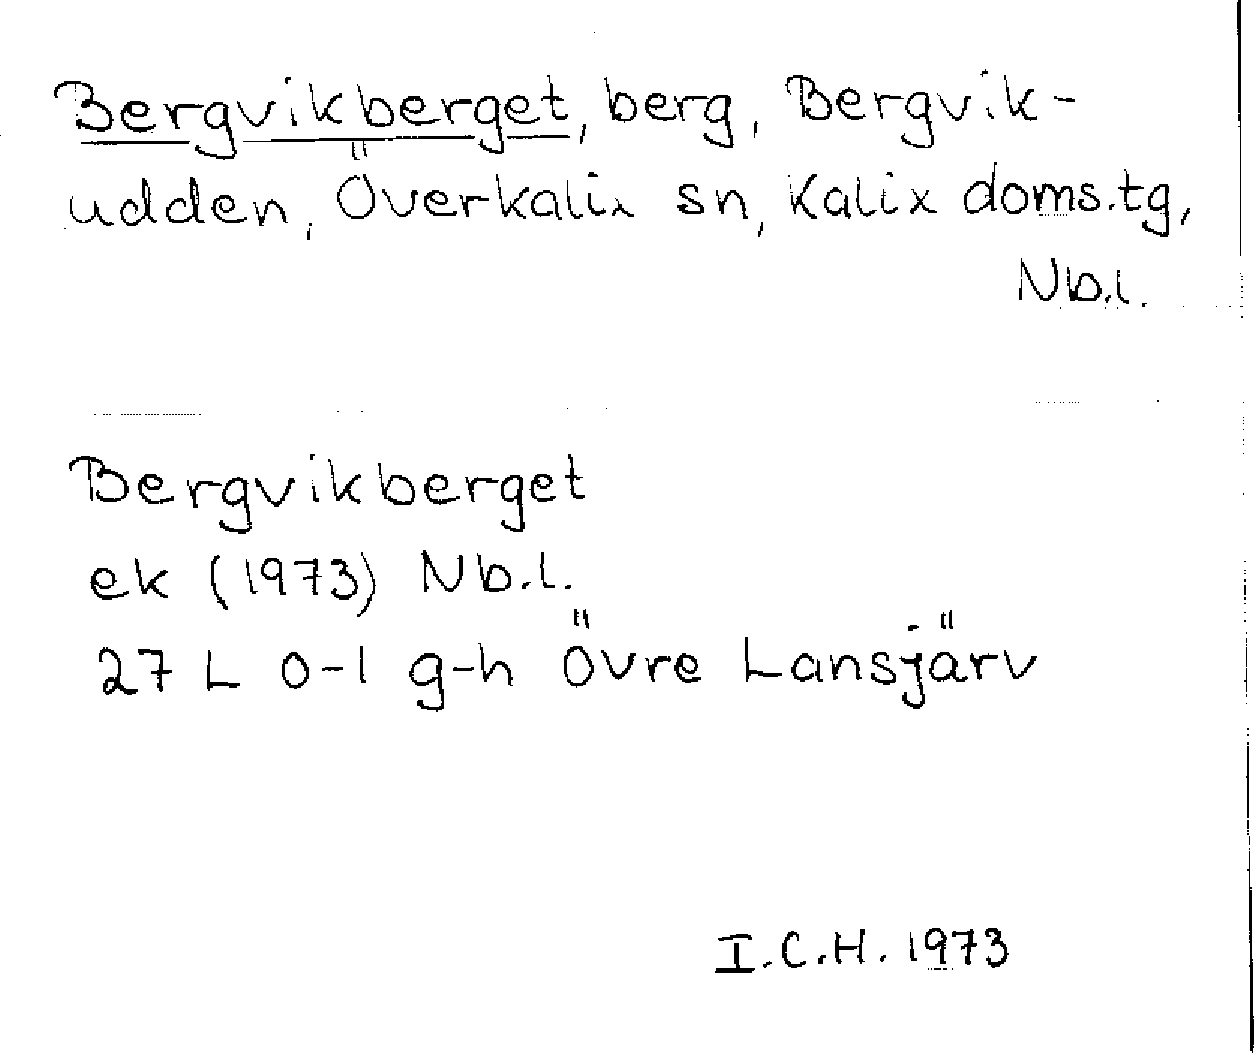 Bergvikberget, berg, Bergvik-
udden, Överkalix sn, Kalix doms.tg,
Nb.l.
Bergvikberget
ek (1973) Nb.l.
27 L 0-1 g-h Övre Lansjärv
I.C.H. 1973